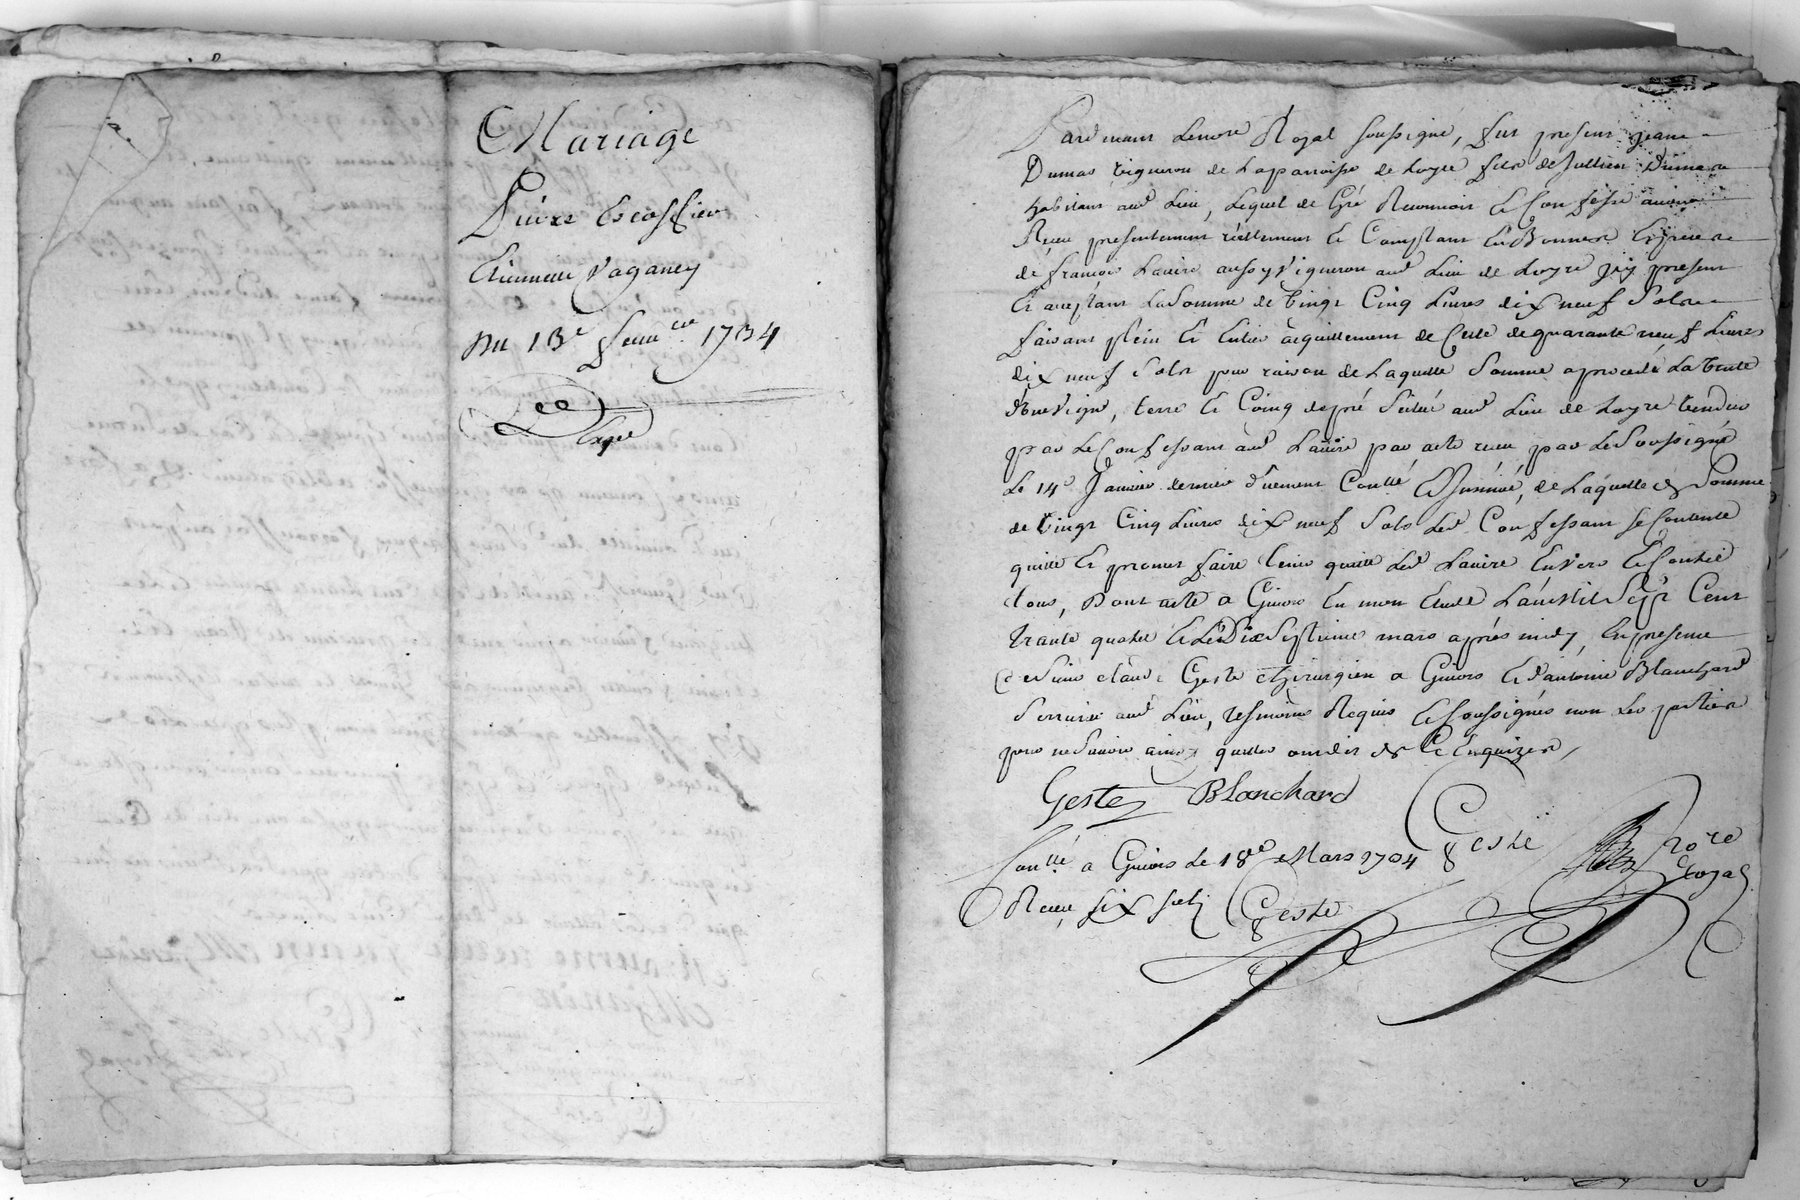 Mariage
Pierre
Etiennette Vaganey
Du 13e 1734
Expé
Pardevant Lenore Royal soussigné, fut present Jean
Dumas vigneron de Laparroisse de Loyre fils de Jullien Dumas
habitant aud Lieu, Lequel de Gré Reconnoit Et Confesse avoir
Receu presentement réellement Et Comptant En Bonnes Especes
de françois Lavire aussy Vigneron aud Lieu de Loyre jcy present
Et aceptant La Somme de Vingt Cinq Livres dix neuf Sols
faisant plein Et Entier acquittement de Celle de quarante neuf Livres
dix neuf Sols pour raison de Laquelle Somme a procedé La Vente
d'une Vigne, terre Et Coing de pré Situé aud Lieu de Loyre Vendus
par Le Confessant aud Lavire par acte receu par Le Soussigné
Le 14e Janvier dernier düement Conllé Et Jnsinüé, de Laquelle de Somme
de Vingt Cinq Livres dix neuf Sols Led Confessant se Contente
quitte Et promet faire tenir quitte Led Lavire Envers Et Contre
tous, Dont acte a Givors En mon Etude L'an Mil Sept Cent
trante quatre Et Le Dix Septieme mars aprés midy, En presence
de Sieur Claude Geste chirurgien a Givors Et d'antoine Blanchard
Serrurier aud Lieu, tesmoins Requis Et Soussignés non Les parties
pour ne Savoir ainsy quelles ont dit de Ce Enquizes,
Geste Blanchard
Geste Nore Royal
Conllé a Givors Le 18e Mars 1734
Receu six sols Geste